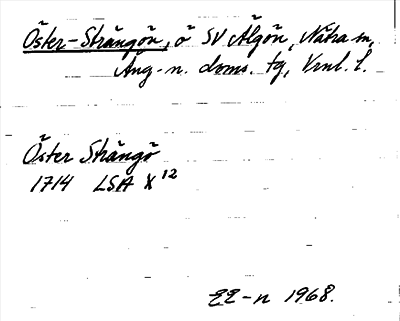 Öster-Strängön, ö SV Älgön, Nätra sn,
Ång-n. doms. tg, Vrnl. l.
Öster Strängö
1714 LSA X 12
EE-n 1968.